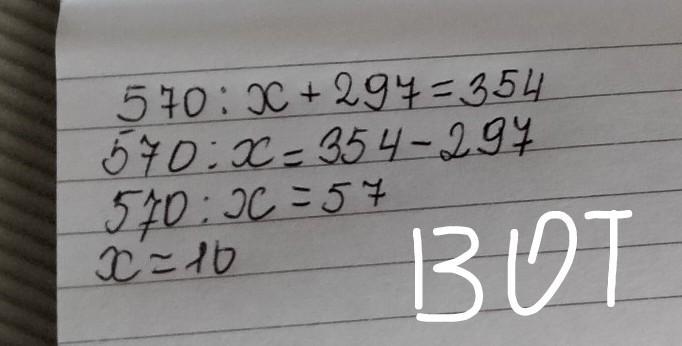 570 : x + 297 = 354
570 : x = 354 - 297
570 : x = 57
x = 10
ВОТ